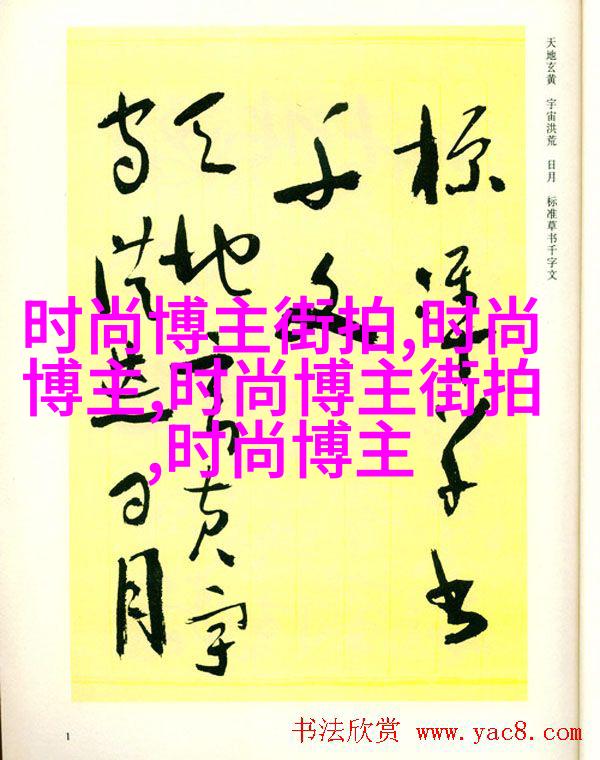 天地玄黄 宇宙洪荒 日月 标准草书千字文
标准草书
千文
天地玄黄宇
宙洪荒日月
时尚博主街拍,时尚
博主,时尚博主街拍
,时尚博主
1
书法欣赏 www.yac8.com